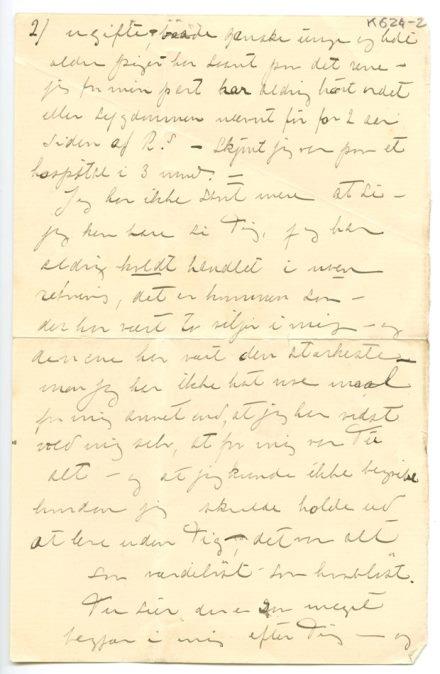 K624-2
2/ ugifte, både ganske unge og halv
alder piger har saant paa det rene –
jeg for min part har aldrig hørt ordet
eller sygdommen nævnt før for 2 aar
siden af R.s – skjønt jeg var paa et
hospital i 3 mnd. –
Jeg har ikke stort mere at si –
jeg kan bare si Dig, jeg har
aldrig koldt handlet i noen
retning, det er kommen som –
der har vært to viljer i mig – og
den ene har vært den stærkeste –
men jeg har ikke hat noe maal
for mig annet end, at jeg har vidst
ved mig selv, at for mig var Du
alt – og at jeg kunde ikke begribe
hvordan jeg skulde holde ud
at leve uden Dig –, det var alt
som værdiløst – som
Du sier, der er saa meget
begjær i mig efter Dig – og